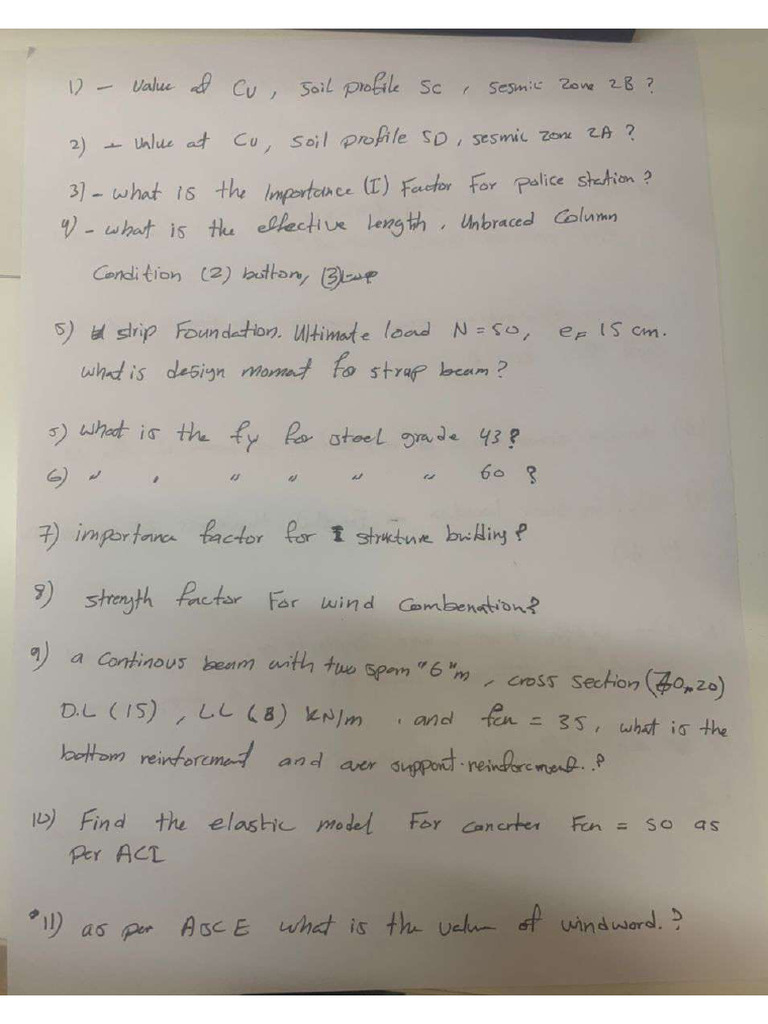 1) - Value of Cv, Soil profile Sc, sesmic Zone 2B?
2) - Value at Cv, Soil profile SD, sesmic zone 2A?
3) - what is the Importance (I) Factor for police station?
4) - what is the effective length, Unbraced Column
Condition (2) buttom, (3) top
5) strip Foundation. Ultimate load N = 50, e = 15 cm.
what is design moment for strap beam?
5) what is the fy for steel grade 43?
6) " " " " " " 60?
7) importance factor for structure building?
8) strength factor For wind Combenation?
9) a continous beam with two span "6"m, cross section (70*20)
D.L (15), L.L (8) kN/m. and fcu = 35, what is the
bottom reinforcment and over support reinforcment..?
10) Find the elastic model For concrter Fcu = 50 as
per ACI
11) as per ASCE what is the value of windword.?